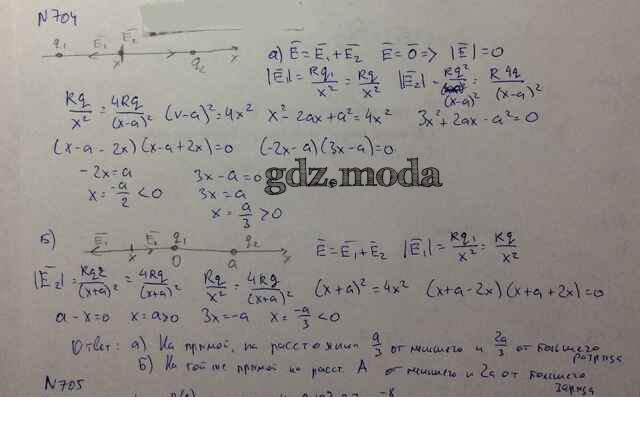 N704
q₁ E̅₁ E̅₂ x q₂ x
а) E̅ = E̅₁ + E̅₂ E̅ = 0̅ => |E̅| = 0
|E̅₁| = kq₁/x² = kq/x² |E̅₂| = kq₂/(x-a)² = k4q/(x-a)²
kq/x² = 4kq/(x-a)² (x-a)² = 4x² x² - 2ax + a² = 4x² 3x² + 2ax - a² = 0
(x-a-2x)(x-a+2x) = 0 (-2x-a)(3x-a) = 0
-2x = a 3x - a = 0
x = -a/2 < 0 3x = a
x = a/3 > 0
gdz.moda
Б) E̅₁ E̅₂ q₁ q₂ x 0 a x
E̅ = E̅₁ + E̅₂ |E̅₁| = kq₁/x² = kq/x²
|E̅₂| = kq₂/(x+a)² = 4kq/(x+a)² kq/x² = 4kq/(x+a)² (x+a)² = 4x² (x+a-2x)(x+a+2x) = 0
a - x = 0 x = a > 0 3x = -a x = -a/3 < 0
Ответ: а) На прямой, на расстоянии a/3 от меньшего и 2a/3 от большего
Б) На той же прямой на расст. А от меньшего и 2a от большего
заряда
N705
-8